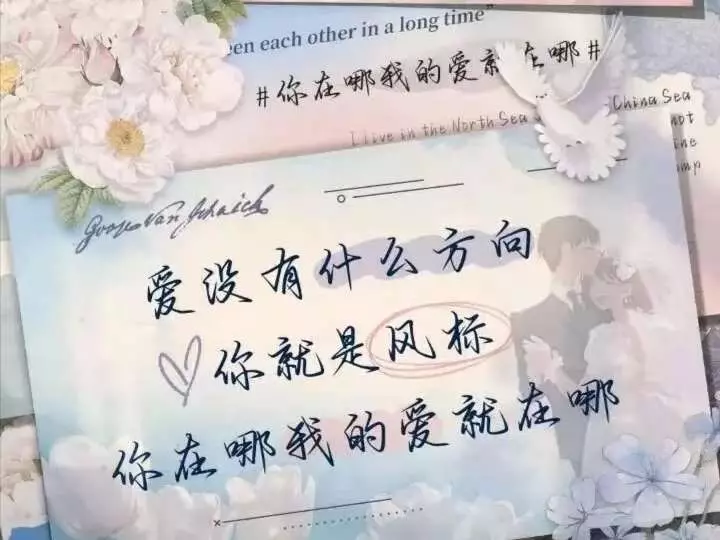 een each other in a long time"
#你在哪我的爱就在哪#
I live in the North Sea
China Sea
not
ine
mp
爱没有什么方向
你就是风标
你在哪我的爱就在哪